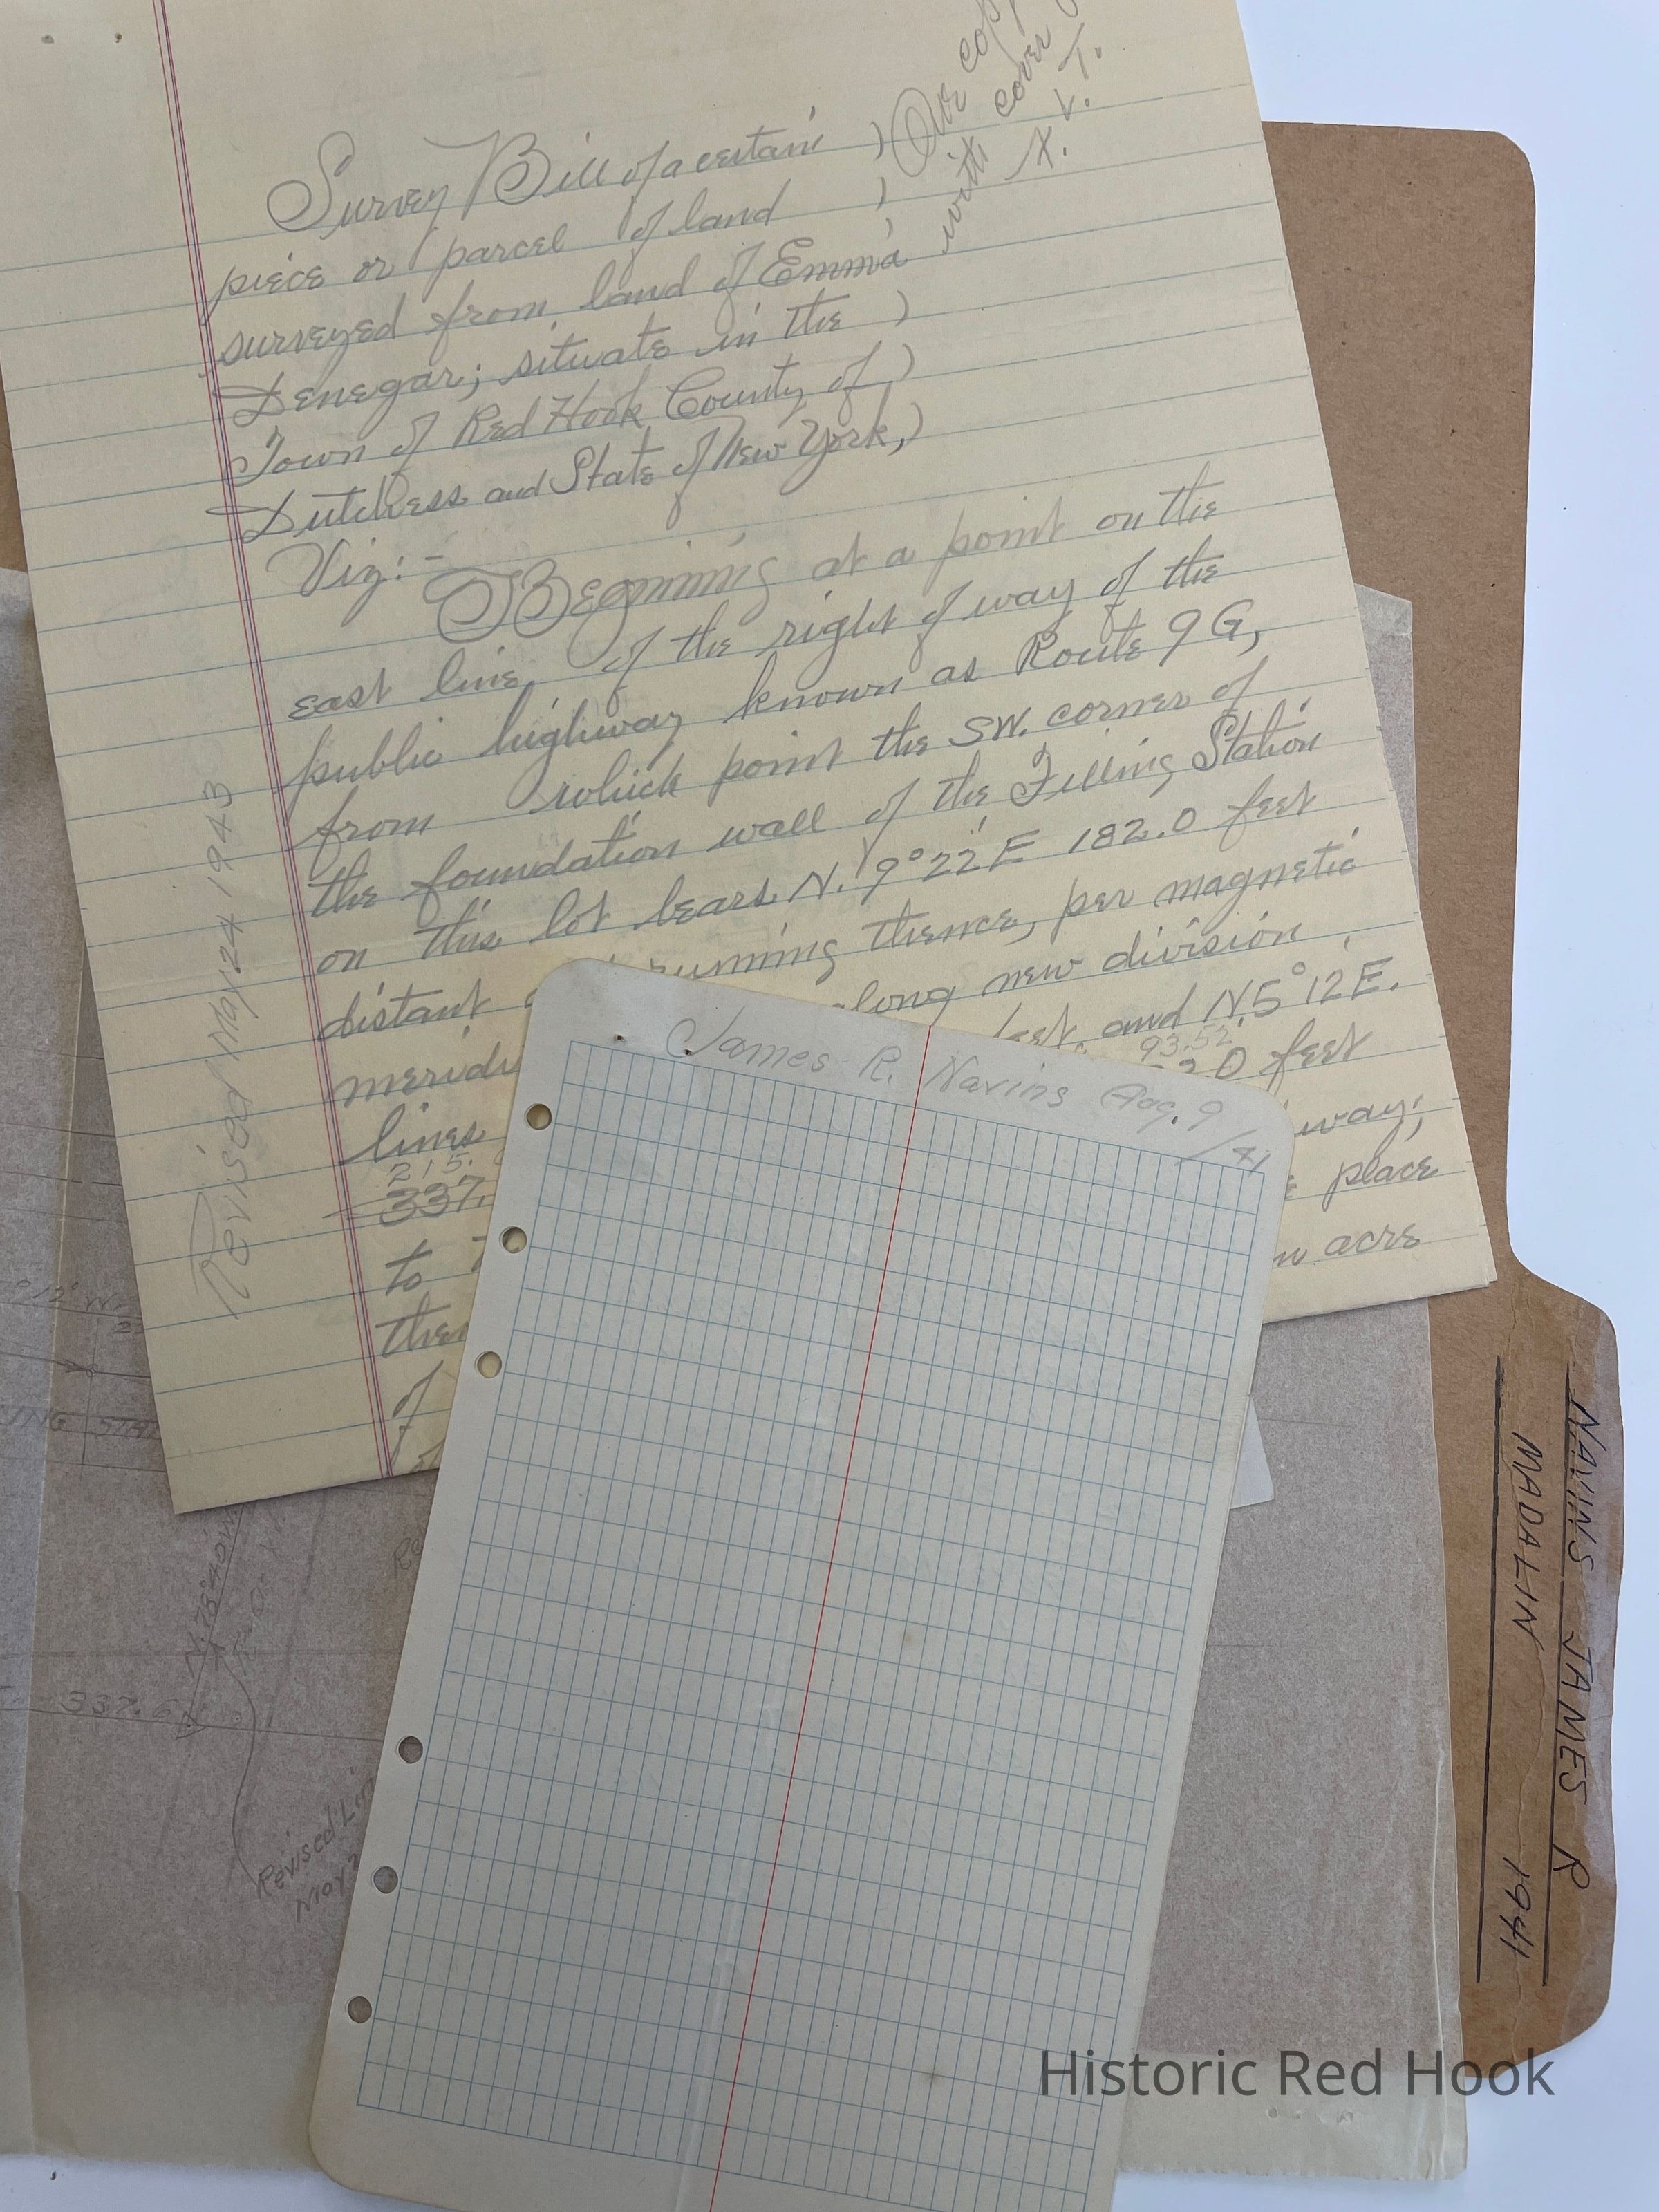 Our cop
with cover
Survey Bill of a certain )
piece or parcel of land )
surveyed from land of Emma
Denegar; situate in the )
Town of Red Hook County of )
Dutchess and State of New York, )
Viz:-
Beginning at a point on the
east line of the right of way of the
public highway known as Route 9G,
from which point the SW. corner of
the foundation wall of the Filling Station
on this lot bears N. 9°22'E 182.0 feet
distant running thence, per magnetic
meridi along new division
lines feet and N5°12'E.
93.52
215.
337. feet
to way;
then place
of acre
Revised May 24 1943
James R. Navins Aug. 9
/41
NAVINS JAMES R
MADALIN 1941
N. 78°40'W
337.6
Revised Lin
May 2
Historic Red Hook